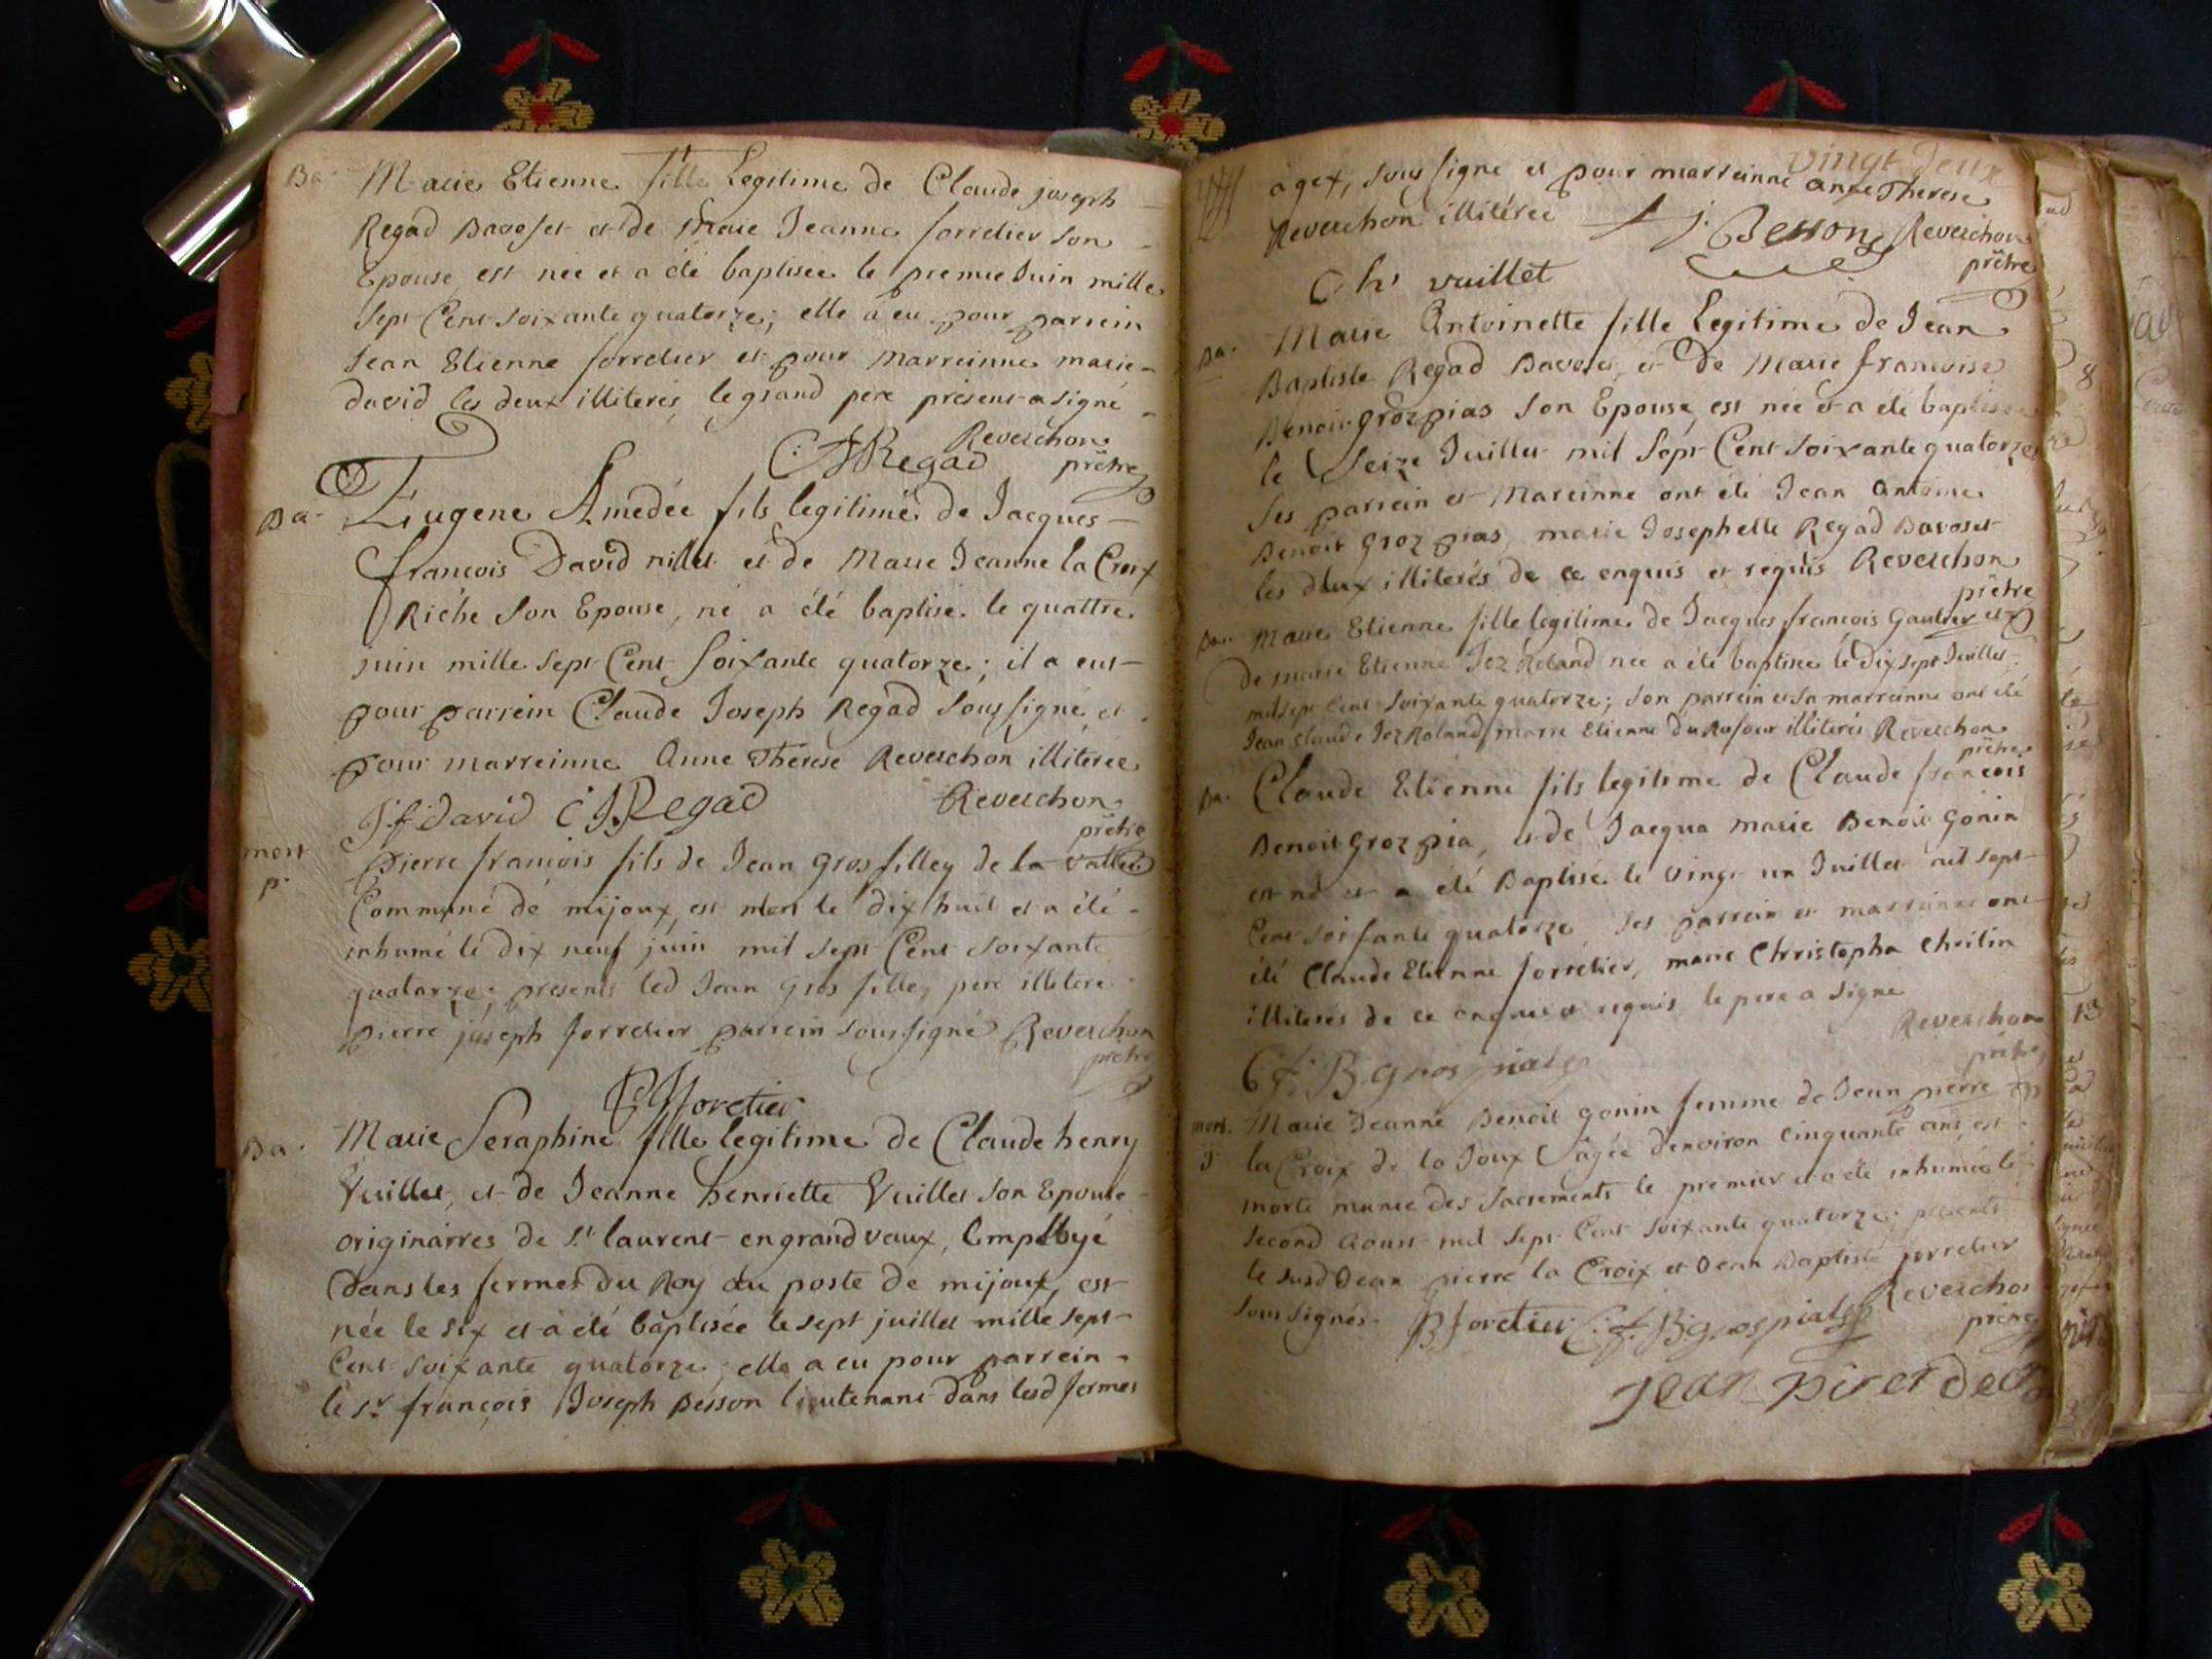 Ba. Marie Etienne fille Legitime de Claude joseph
Regad Bavoset et de Marie Jeanne forretier son
Epouse, est née et a été baptisée le premier Juin mille
sept Cent soixante quatorze; elle a eu pour parrein
Jean Etienne forretier et pour marreinne marie
david les deux illiterés, le grand pere present a signé
Reverchon
C J Regad prêtre
Ba. Eugene Amedée fils legitime de Jacques
francois David nillet et de Marie Jeanne la Croix
Riche son Epouse, né a été baptisé le quattre
juin mille sept Cent soixante quatorze; il a eut
pour parrein Claude Joseph Regad soussigné et
pour marreinne Anne Thérèse Reverchon illiteree
J f david C J Regad Reverchon
prêtre
mort
p. pierre francois fils de Jean gros filley de la vallée
Commune de mijoux, est mort le dix huit et a été
inhumé le dix neuf juin mil sept Cent soixante
quatorze; presents led Jean gros filley pere illiteré
pierre joseph forretier parrein soussigné Reverchon
prêtre
P J foretier
Ba. Marie Seraphine fille legitime de Claude henry
Vuillet, et de Jeanne henriette Vuillet son Epouse
originairres de st laurent en grandvaux, Employé
dans les fermes du Roy au poste de mijoux, est
née le six et a été baptisée le sept juillet mille sept
Cent soixante quatorze, elle a eu pour parrein
le sr françois Joseph Besson lieutenant dans lesd fermes
vingt deux
a gex, soussigné et pour marreinne anne Therese
Reverchon illitérée f j. Besson Reverchon
prêtre
C h vuillet
Ba. Marie Antoinette fille Legitime de Jean
Baptiste Regad Bavoset, et de Marie francoise
Benoit grozpias son Epouse, est née et a été baptisée
le Seize Juillet mil sept Cent soixante quatorze
ses parrein et Mareinne ont été Jean Antoine
Benoit Grozpias, marie Josephelle Regad Bavoset
les deux illiterés de ce enquis et requis Reverchon
prêtre
Ba. Marie Etienne fille legitime de Jacques francois Gautier et
de marie Etienne Joz Roland née a été baptisée le dix sept Juillet
mil sept Cent soixante quatorze; son parrein et sa marreinne ont été
Jean Claude Joz Roland, marie Etienne du Rafour illiterés Reverchon
prêtre
Ba. Claude Etienne fils legitime de Claude francois
Benoit Grozpia, et de Jacqua marie Benoit Gonin
est né et a été Baptisé le vingt un Juillet mil sept
Cent soixante quatorze, ses parrein et marreinne ont
été Claude Etienne forretier, marie Christopha Christin
illiterés de ce enquis et requis, le pere a signé
Reverchon
C f. B grospiat prêtre
mort. Marie Jeanne Benoit gonin femme de Jean pierre
j. la Croix de la Joux âgée d'environ Cinquante ans, est
morte munie des sacrements le premier et a été inhumée le
second Aoust mil sept Cent soixante quatorze; presents
le susd Jean pierre la Croix et Jean Baptiste forretier
soussignés. Reverchon
B foretier C. f. B grospiat prêtre
Jean pier